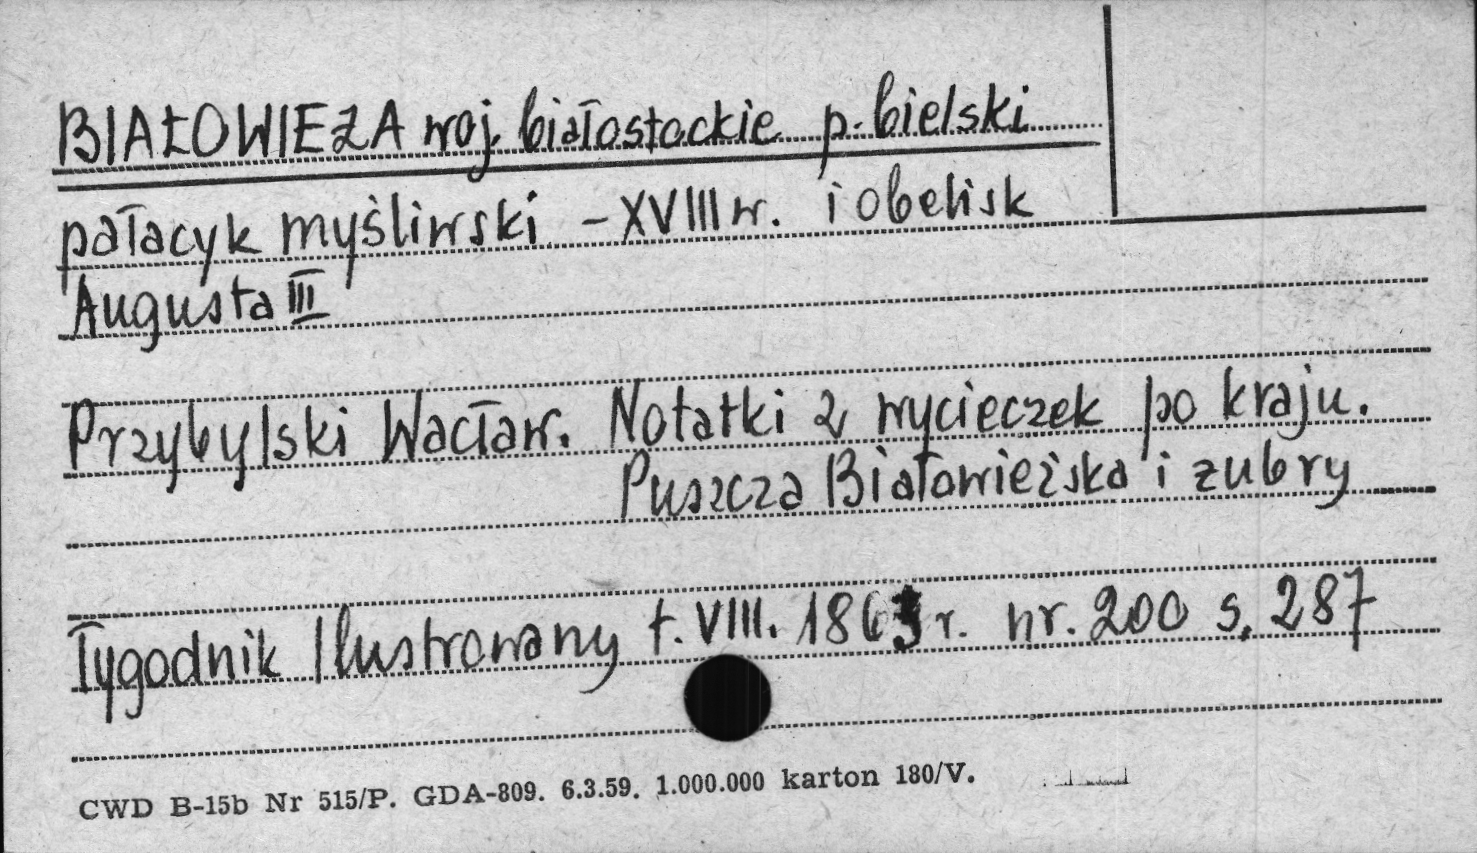 BIAŁOWIEŻA woj. białostockie p. bielski
pałacyk myśliwski – XVIII w. i obelisk
Augusta III
Przybylski Wacław. Notatki z wycieczek po kraju.
Puszcza Białowieżska i żubry
Tygodnik Ilustrowany t. VIII. 1863 r. nr. 200 s. 287
CWD B-15b Nr 515/P. GDA-809. 6.3.59. 1.000.000 karton 180/V.